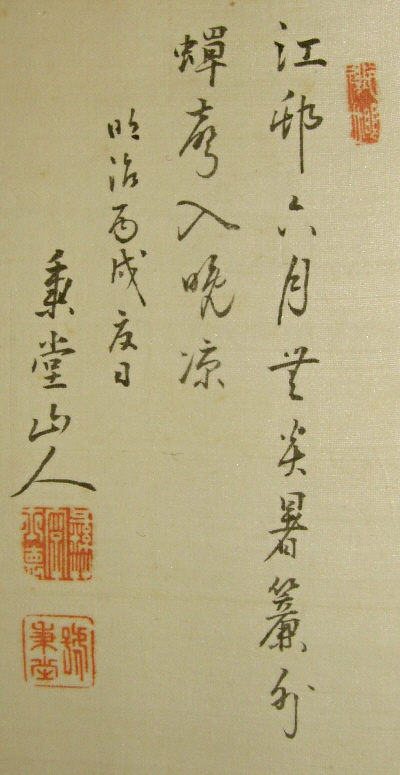 江邨六月无炎暑簾外
蟬聲入晚凉
明治丙戌夏日
秉堂山人
秉堂